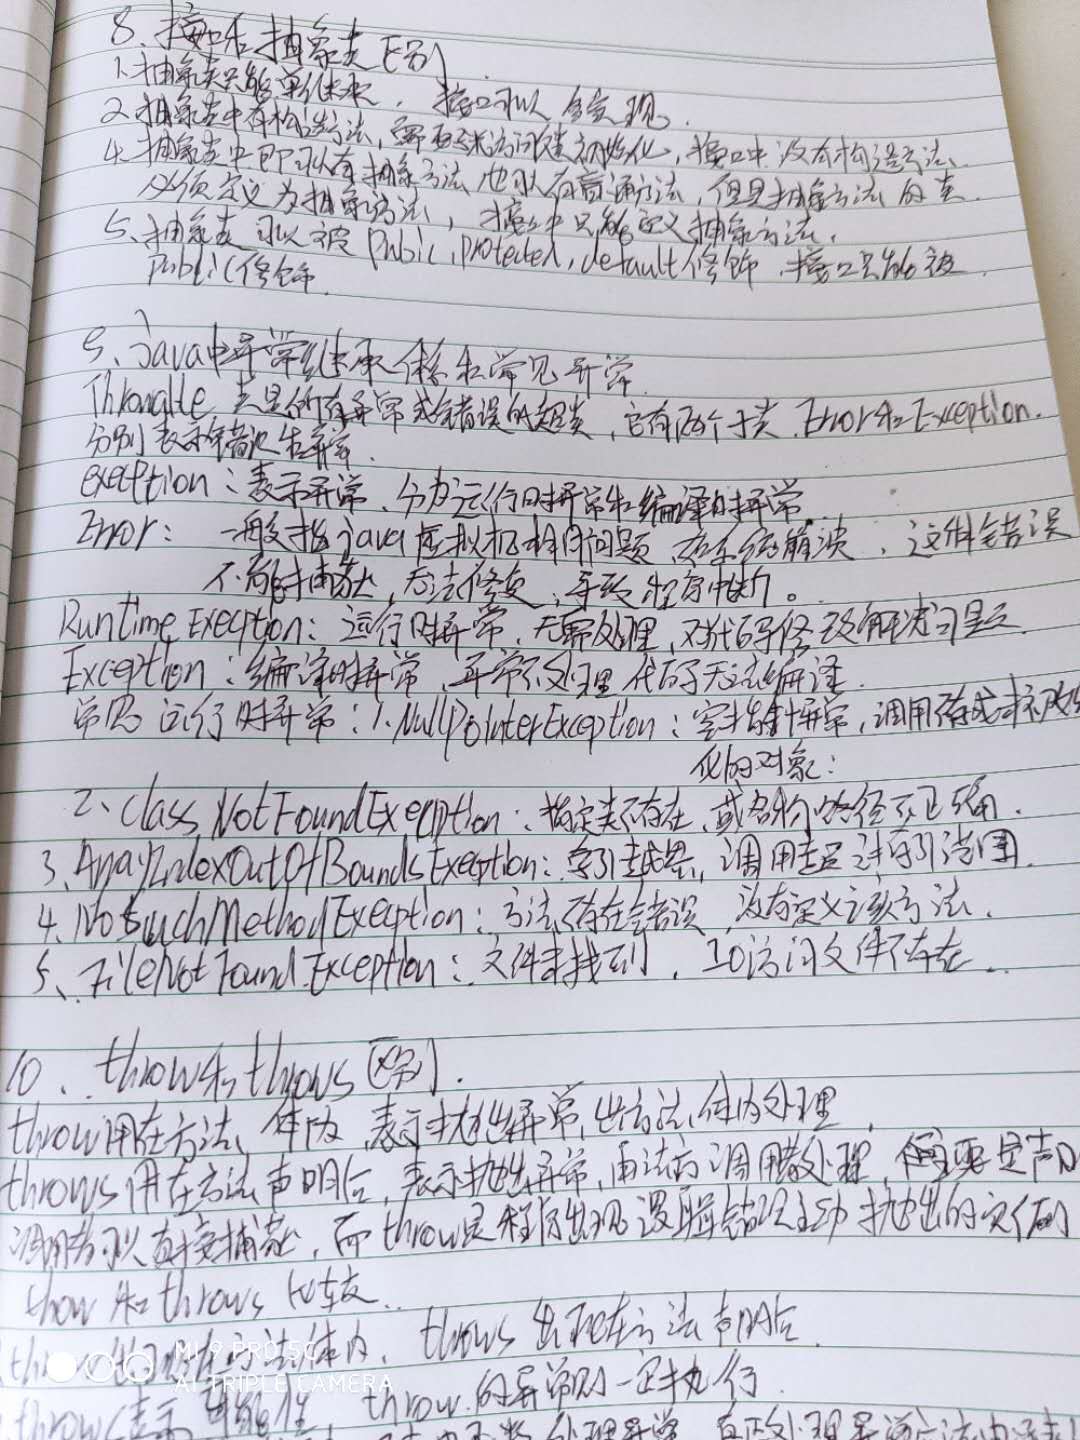 8、接口和抽象类区别
1、抽象类只能单继承，接口可以多实现.
2、抽象类中有构造方法，初始化，接口中没有构造方法、
4、抽象类中即可以有抽象方法也可以有普通方法，但是抽象方法的类
必须定义为抽象方法，接口中只能定义抽象方法.
5、抽象类可以被pubic,protected,default修饰，接口只能被
public修饰.
9、java中异常继承体系和常见异常.
类是所有异常或错误的超类，它有两个子类.Error和Exception.
分别表示错误和异常.
exception：表示异常、分为运行时异常和编译时异常.
Error： 一般指java虚拟机相关问题 如系统崩溃，这种错误
不能捕获，无法修复，导致程序中断。
Runtime Exception：运行时异常，无需处理，对代码修改解决问题
Exception：编译时异常，异常不处理代码无法编译.
常见运行时异常：1.NullPointerException：空指针异常，调用存或未初始
化的对象：
2、class NotFoundException：指定类不存在，或名称路径不正确.
3、ArrayIndexOutOfBoundsException：索引越界，调用超过索引范围.
4、NoSuchMethodException：方法不存在错误，没有定义该方法.
5、FileNotFoundException：文件未找到，IO访问文件不存在.
10、throw和throws区别.
throw用在方法体内，表示抛出异常，由方法体内处理，
throws用在方法声明后，表示抛出异常，由方法调用者处理，主要是声明
调用者可以直接捕获，而throw是程序出现逻辑错误主动抛出的
throw和throws比较.
throw出现在方法体内，throws出现在方法声明后.
throws表示可能性，throw的异常则一定执行.
处理异常，真正处理异常
MI 9 PRO 5G
AI TRIPLE CAMERA